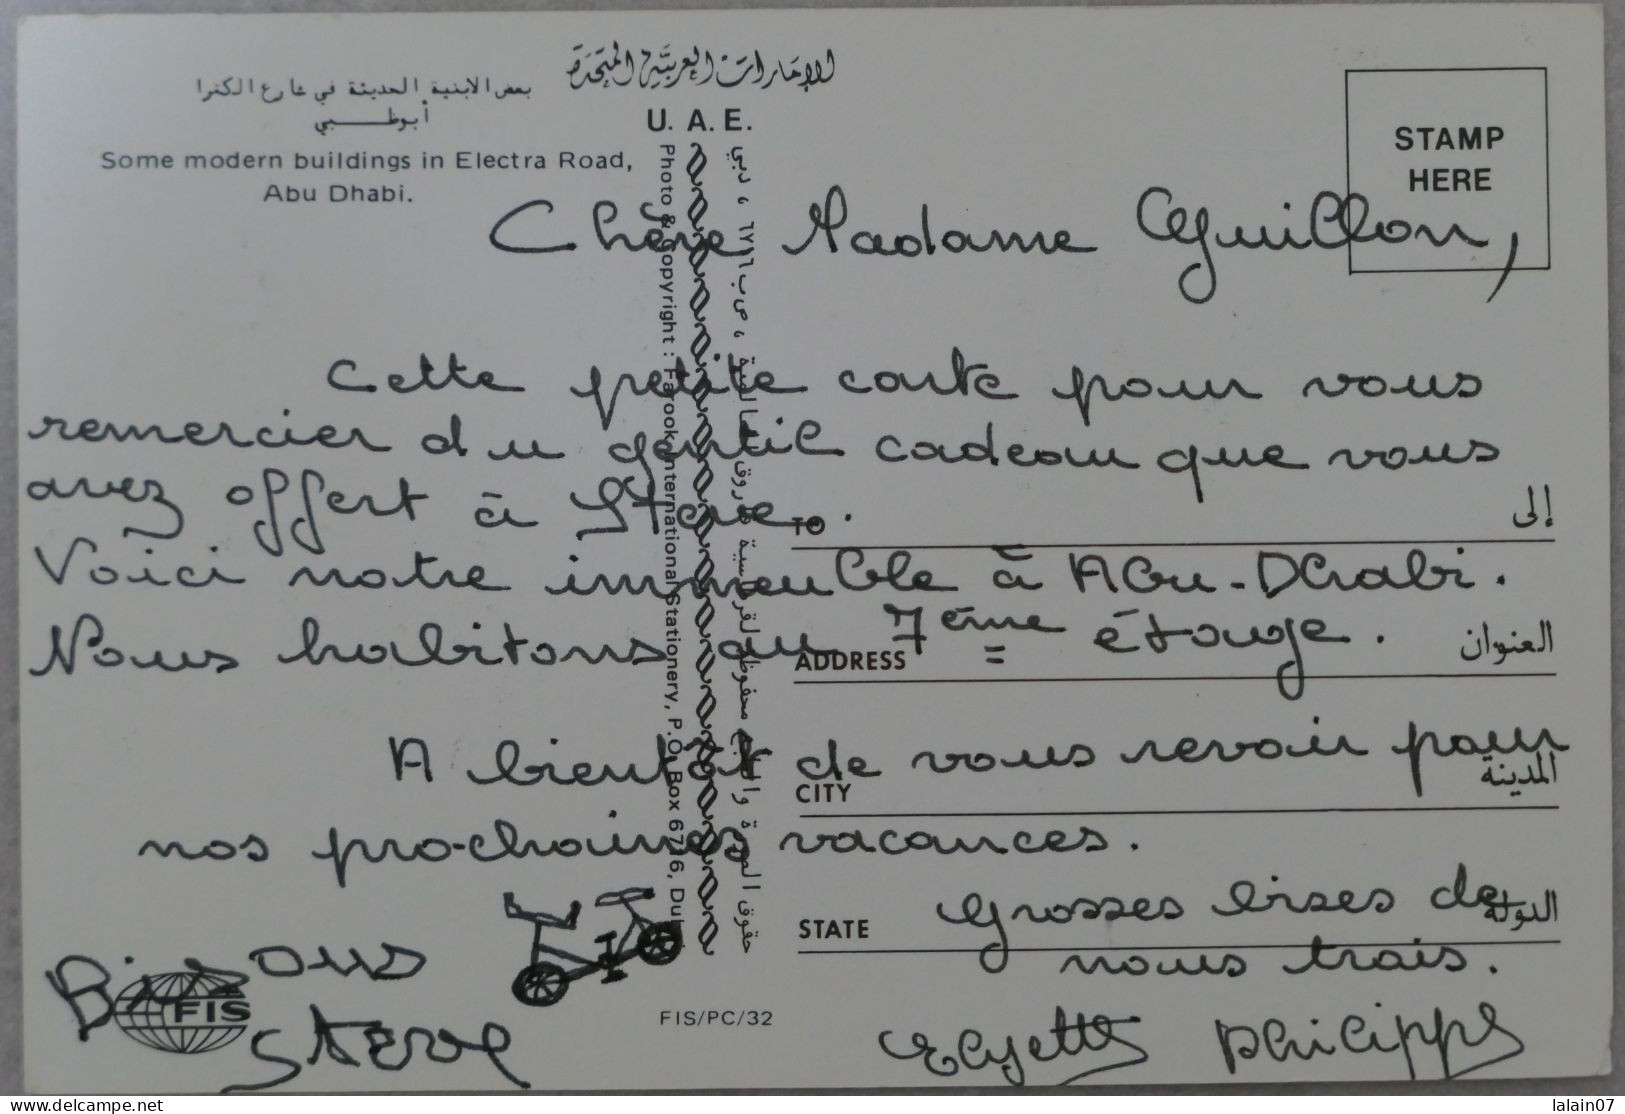 الإمارات العربية المتحدة
U. A. E.
بعض الابنية الحديثة في شارع الكترا
أبوظـــبي
Some modern buildings in Electra Road,
Abu Dhabi.
STAMP
HERE
Photo & Copyright : Farook International Stationery, P.O. Box 6716, Dubai
حقوق الصورة والطبع محفوظة لقرطاسية فاروق العالمية ، ص ب ٦٧١٦ ، دبي
Chère Madame Guillon,
Cette petite carte pour vous
remercier du gentil cadeau que vous
avez offert à Steve.
TO إلى
Voici notre immeuble à Abu-Dhabi.
Nous habitons au 7ème étage.
ADDRESS العنوان
A bientôt de vous revoir pour
CITY المدينة
nos prochaines vacances.
Grosses bises de
STATE الدولة
nous trois.
Bisous
Steve
FIS
FIS/PC/32
Elyette Philippe
www.delcampe.net
lalain07